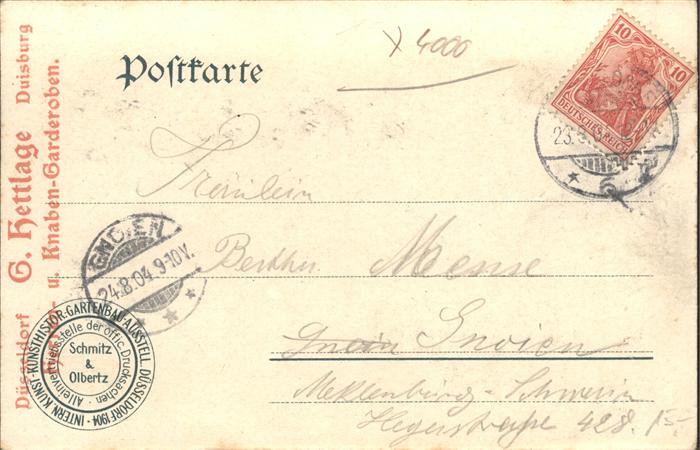 x 4000
Postkarte
10 10
DEUTSCHES REICH
23.
Düsseldorf G. Hettlage Duisburg
Herren- u. Knaben-Garderoben.
Fräulein
GNOIEN
24.8.04.9-10V.
Menne
Gnoien
Mecklenburg-Schwerin
Hegerstraße 428.
15-
INTERN. KUNST-KUNSTHISTOR.-GARTENBAU-AUSSTELL. DÜSSELDORF 1904
Alleinvertriebsstelle der offic. Drucksachen
Schmitz
&
Olbertz